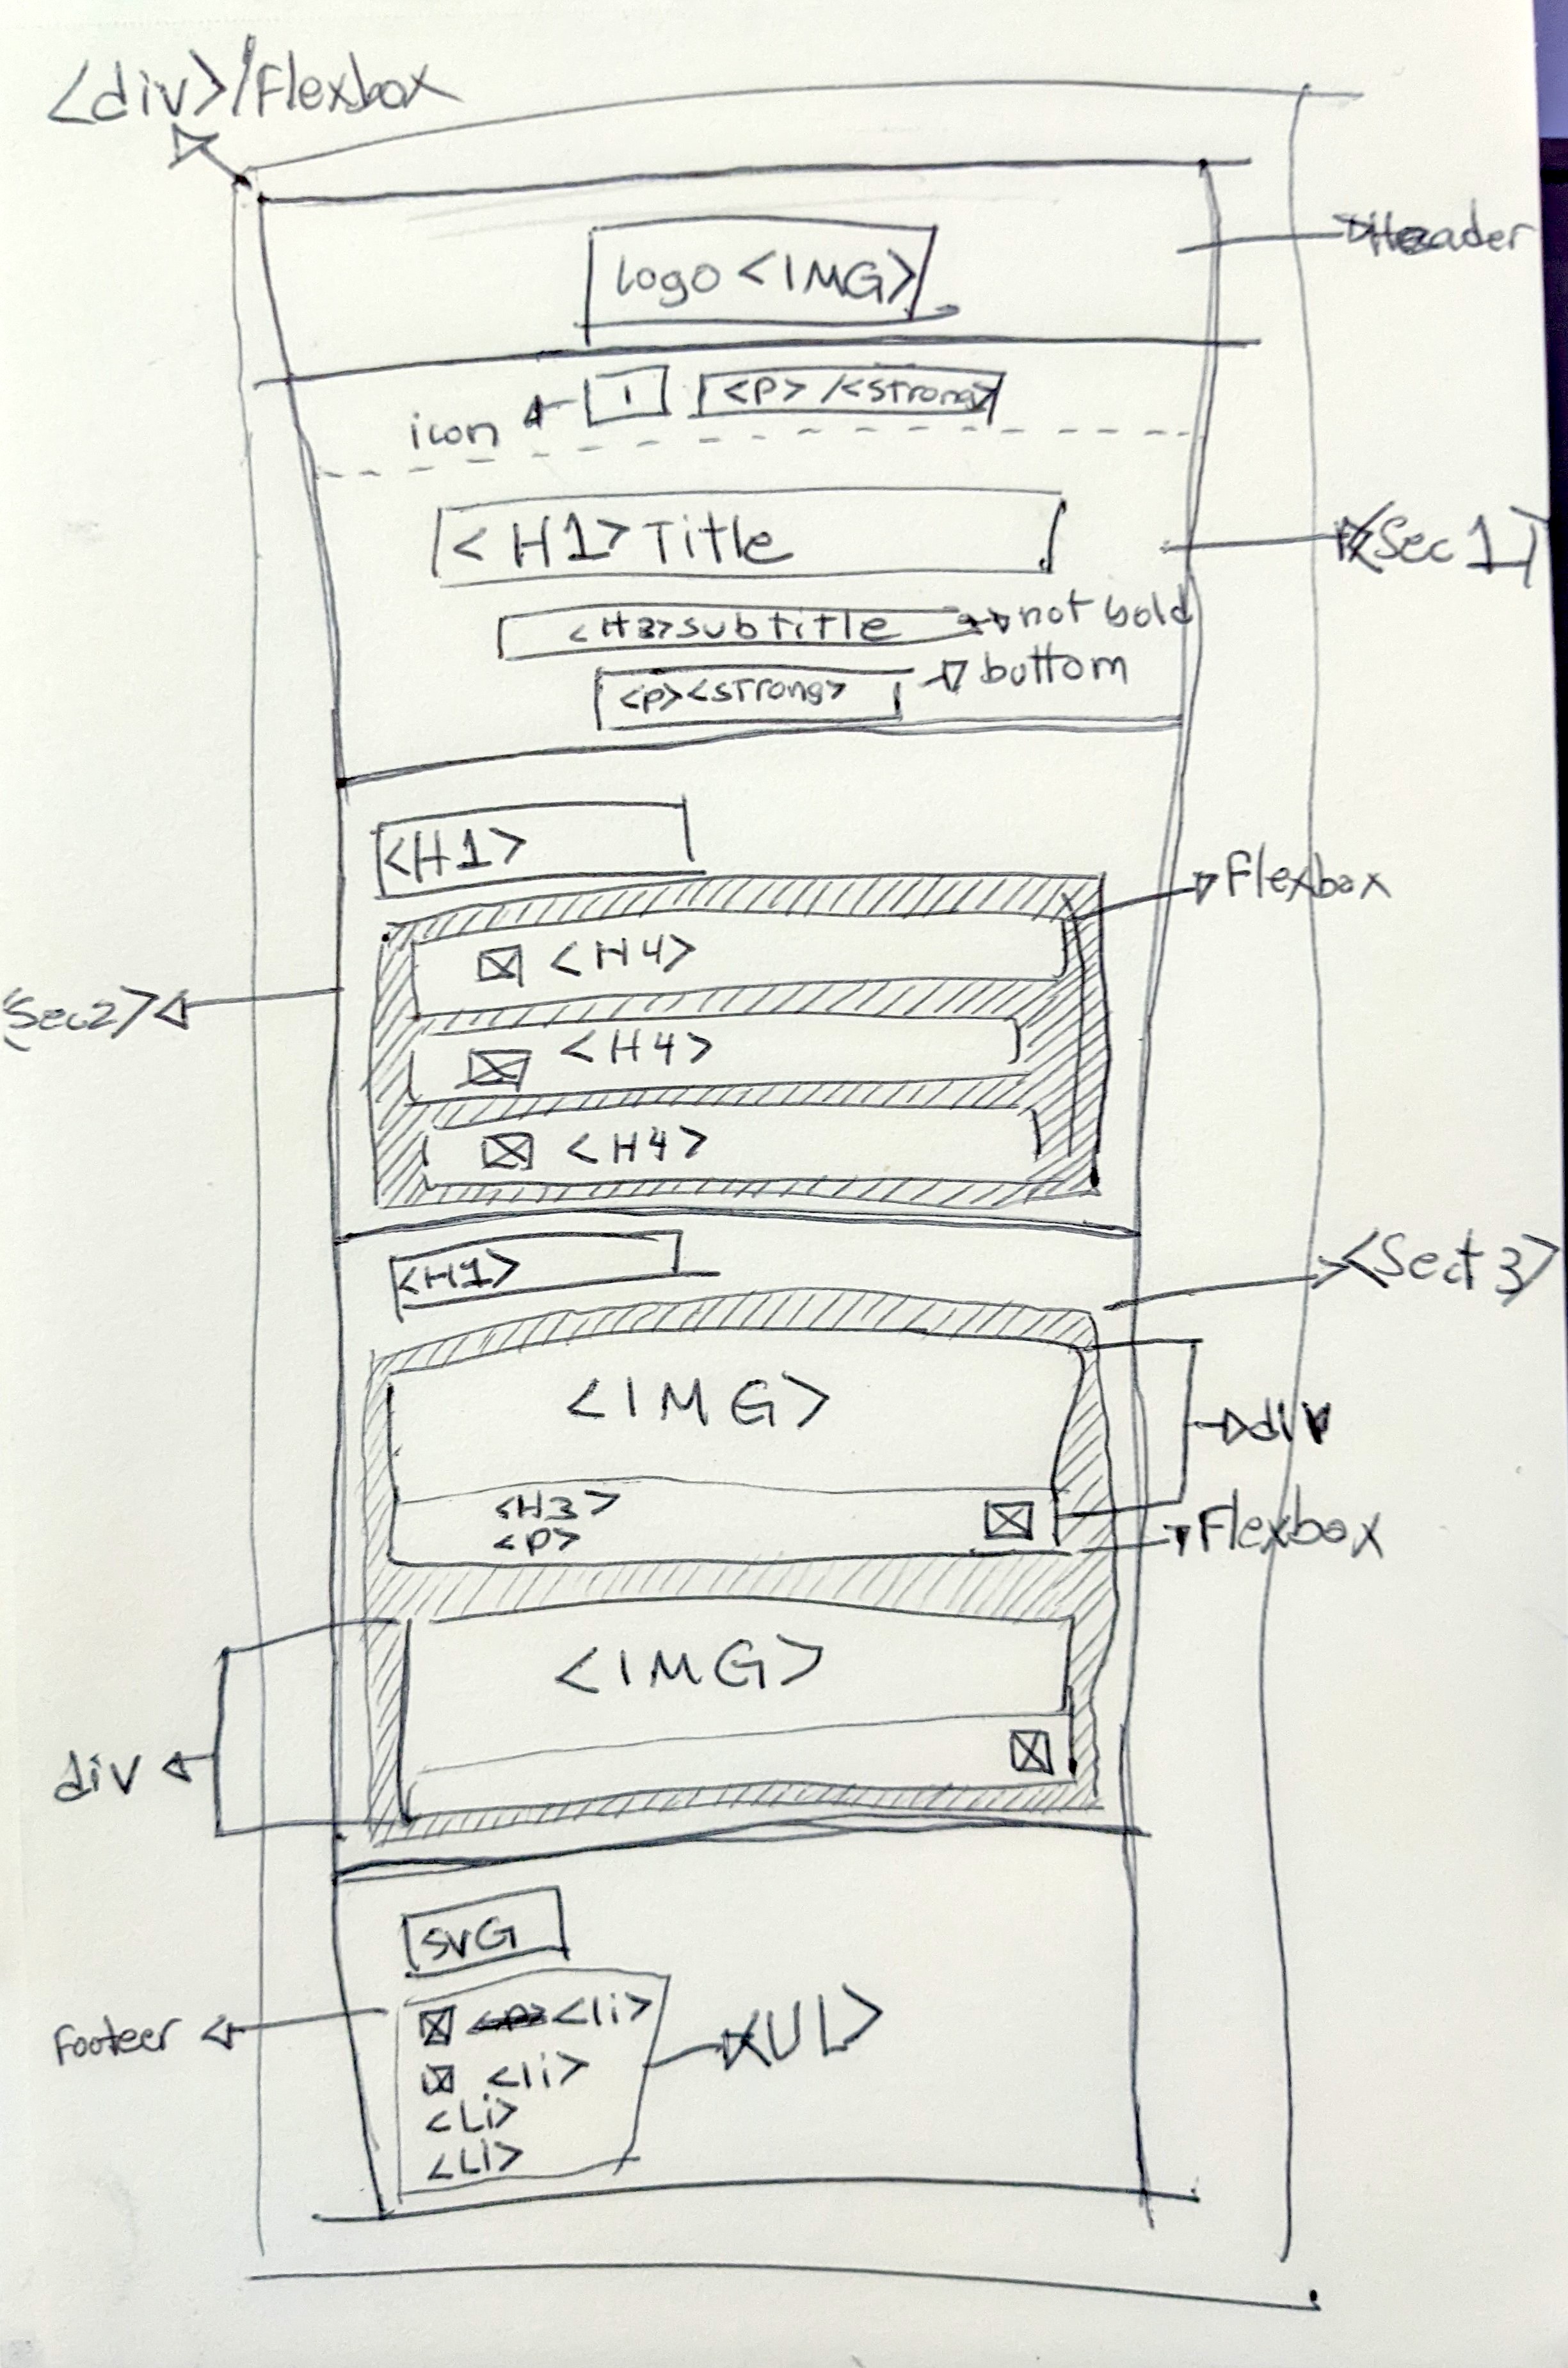 <div>/Flexbox
Header
logo <IMG>
icon
i
<P>/<strong>
<H1>Title
<Sec1>
<H3>subtitle
not bold
<p><strong>
buttom
<H1>
Flexbox
<H4>
<Sec2>
<H4>
<H4>
<H1>
<Sect3>
<IMG>
div
<H3>
<P>
Flexbox
<IMG>
div
SVG
Footeer
<p> <li>
<li>
<UL>
<Li>
<Li>